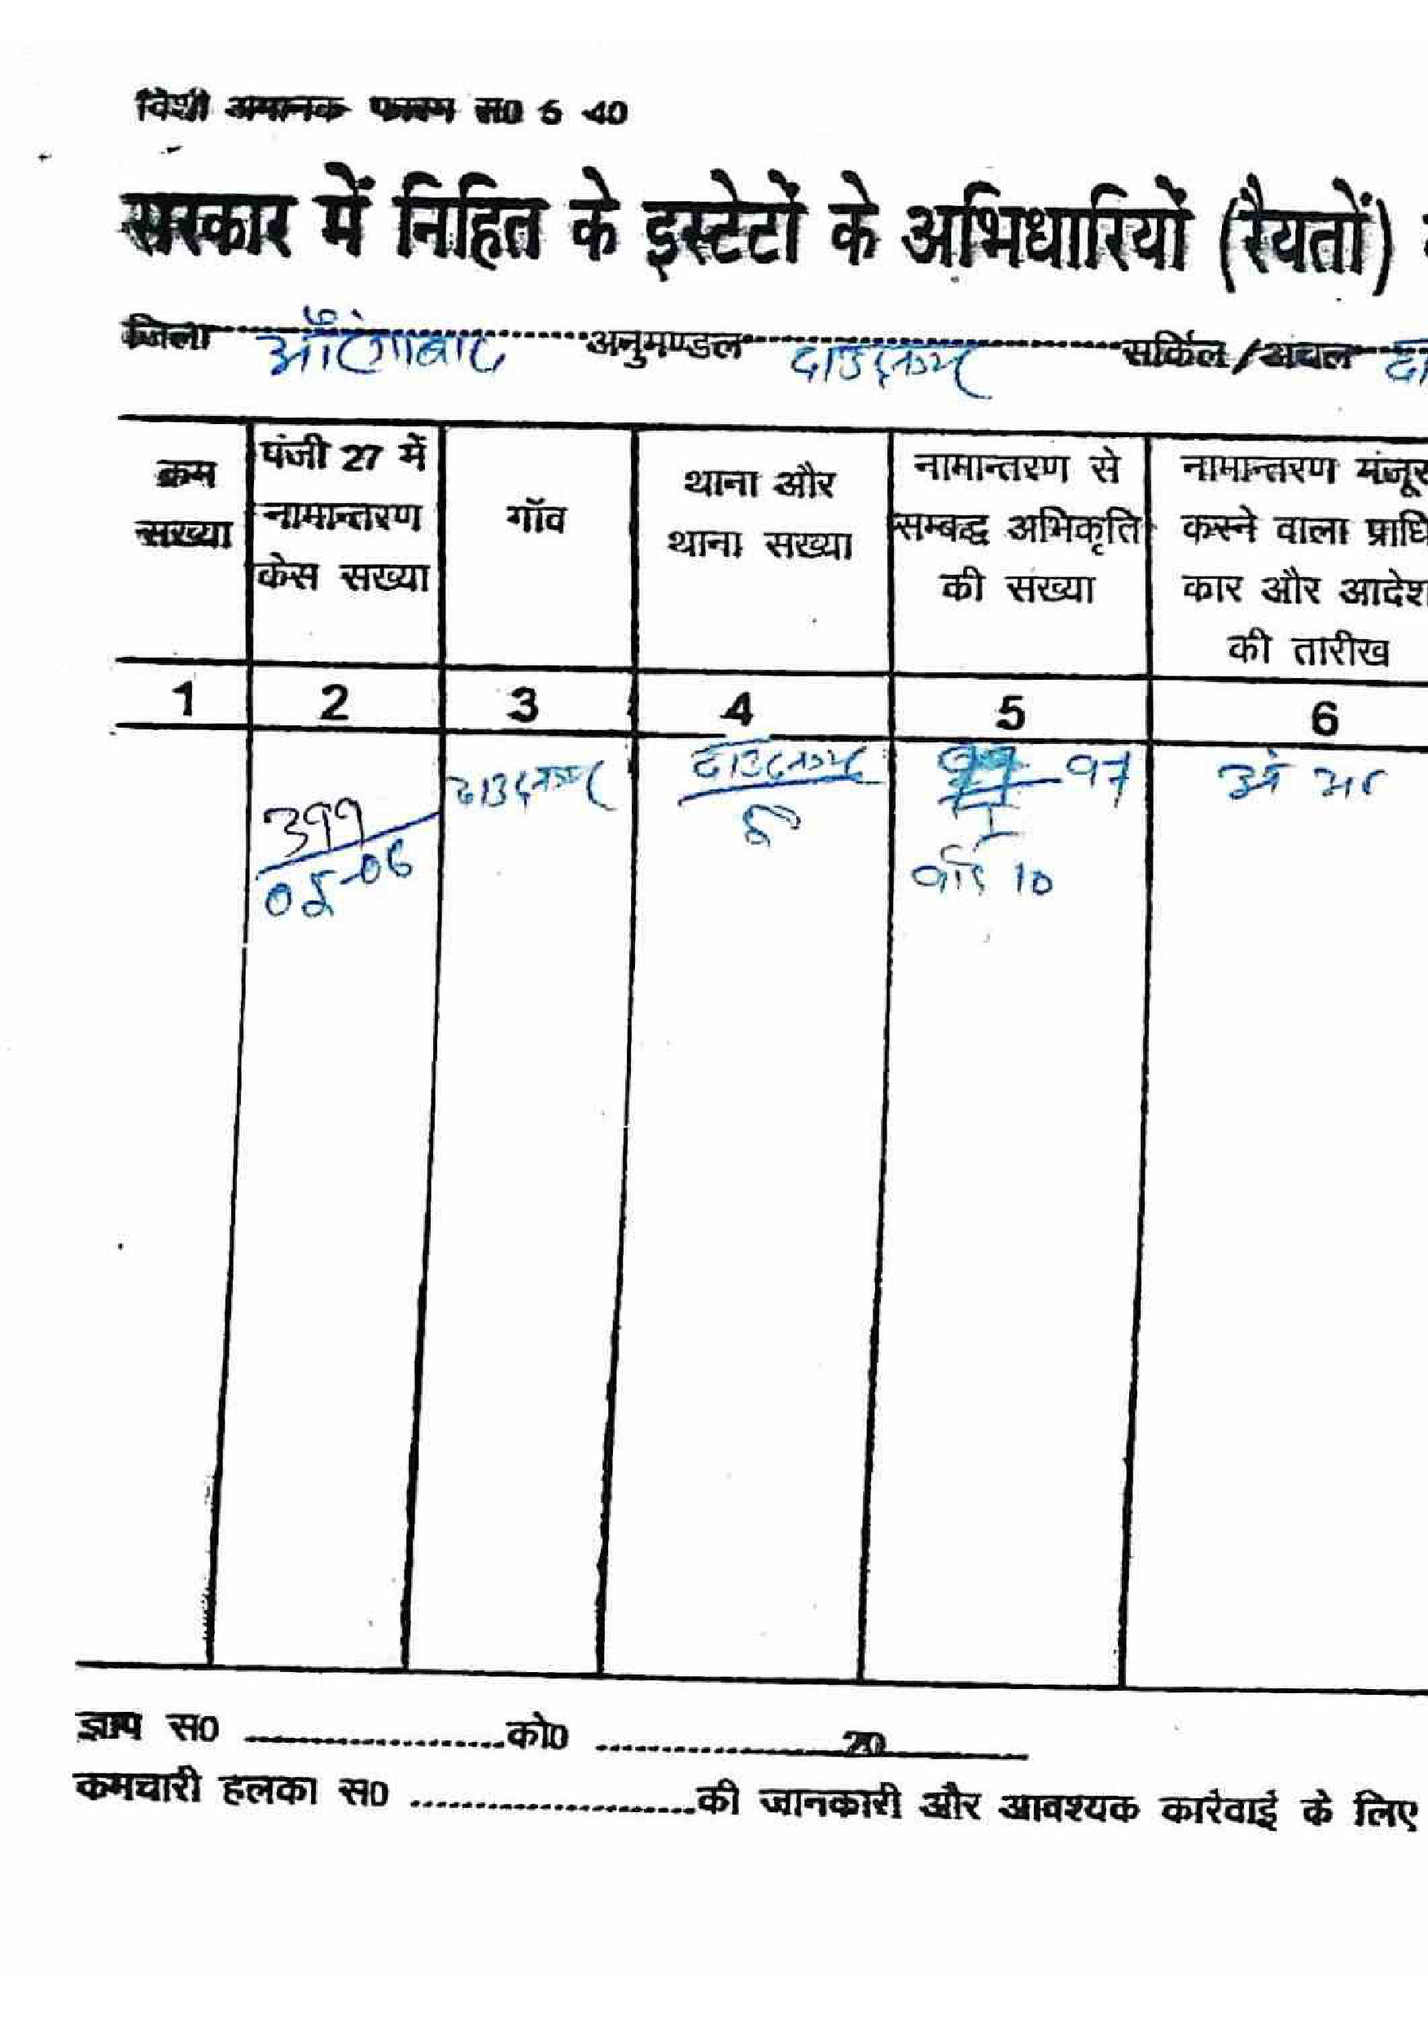 विशी अमानक फारम स0 5 40
सरकार में निहित के इस्टेटों के अभिधारियों (रैयतों)
जिला औरंगाबाद अनुमण्डल दाउदनगर सर्किल/अंचल
क्रम सख्या
पंजी 27 में नामान्तरण केस सख्या
गॉव
थाना और थाना सख्या
नामान्तरण से सम्बद्ध अभिकृति की संख्या
नामान्तरण मंजूर करने वाला प्राधि कार और आदेश की तारीख
1 2 3 4 5 6
399 दाउदनगर दाउदनगर
05-06 वार्ड 10
ज्ञाप स0 ........ को0 ........ 20
कमचारी हलका स0 ........ की जानकारी और आवश्यक कारेवाई के लिए